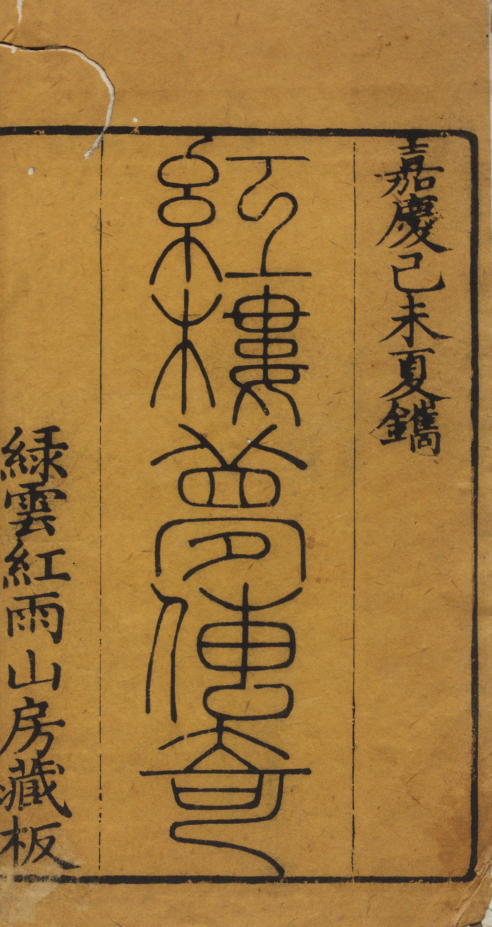 嘉慶己未夏鐫
紅樓夢傳奇
綠雲紅雨山房藏板